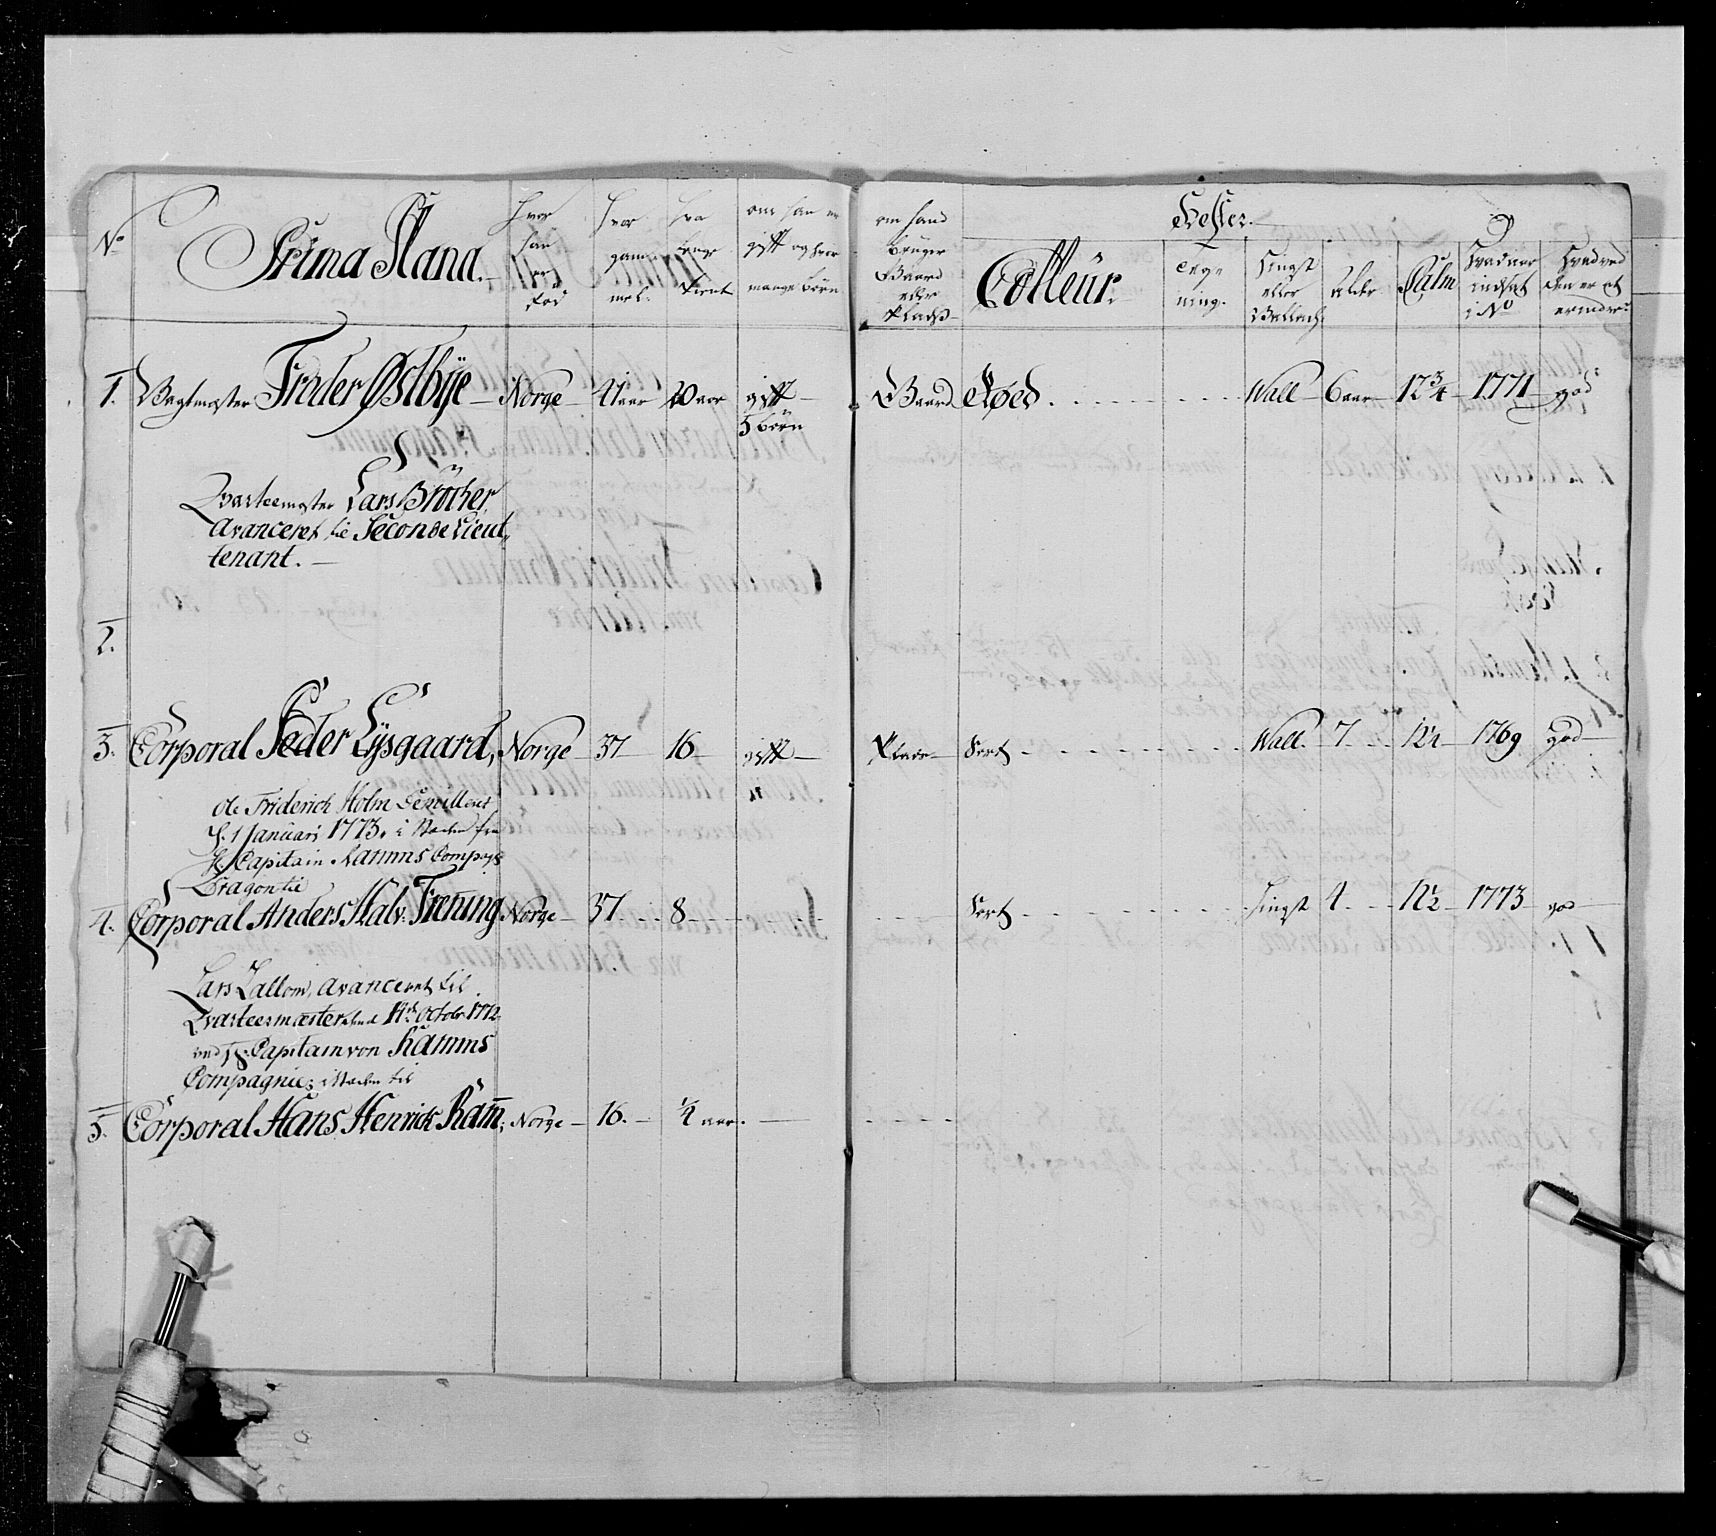 No
Prima Plana.
Hvor han er fød
hvor gam- mel.
hva lenge tient
om han er gift og hvor mange børn
om hand bruger Gaard eller Pladß
Hester.
Colleur.
Tegning.
Hingst eller Vallach.
Alder
Qalm
Hvad aar indsat i No
Hvad ved den er at erindre
1. Vagtmester Frider Østbÿe Norge 41 aar 20 aar gift 5 børn Gaard Røed Wall 6 aar 12 3/4 1771 god
Qvarteermester Lars Brüther
Avanceret til Seconde Lieut„
tenant.
2.
3. Corporal Peder Lÿsgaard, Norge 37 16 gift Plads Sort Wall. 7 12½ 1769 god
de Friderich Holm
1 Januari 1773. i Steden fra
Hr Capitain Ramms Compag
Dragon til
4. Corporal Anders Halv. Frening Norge 37 8 Sort Hingst 4 12½ 1773 god
Lars Zallow, avanceret til
Qvarteermester 14de Octobr 1772
ved Hr. Capitain von Ramms
Compagnie; i Steden til
5. Corporal Hans Henrick Ram̄, Norge 16. ½ aar.